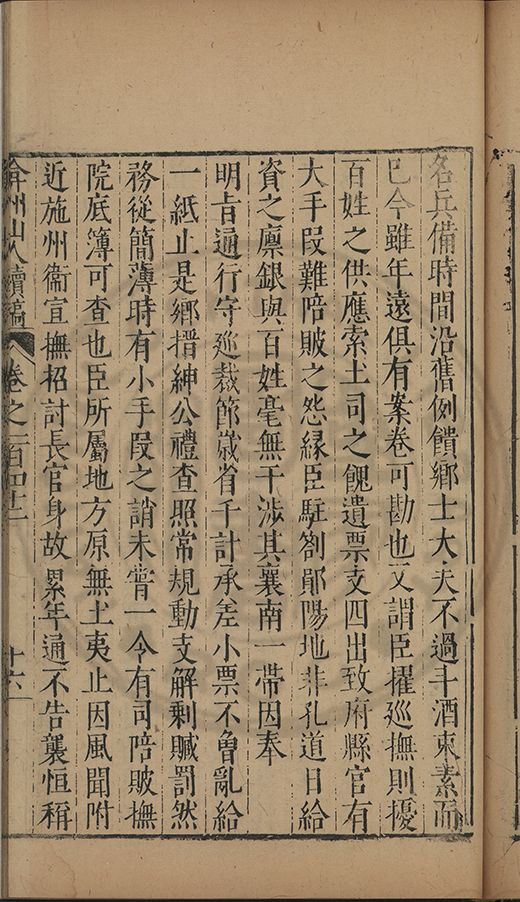 名兵備時間沿舊例饋鄉士大夫不過斗酒束素而
已今雖年遠俱有案卷可勘也又謂臣擢巡撫則擾
百姓之供應索土司之餽遺票支四出致府縣官有
大手段難陪賠之怨緣臣駐劄鄖陽地非孔道日給
資之廪銀與百姓毫無干涉其襄南一帶因奉
明旨通行守巡裁節歲省千計承差小票不曾亂給
一紙止是鄉搢紳公禮查照常規動支解剩贓罰然
務從簡薄時有小手段之誚未甞一令有司陪賠撫
院底簿可查也臣所屬地方原無土夷止因風聞附
近施州衞宣撫招討長官身故累年通不告襲恒稱
弇州山人續稿 卷之一百四十二 十六